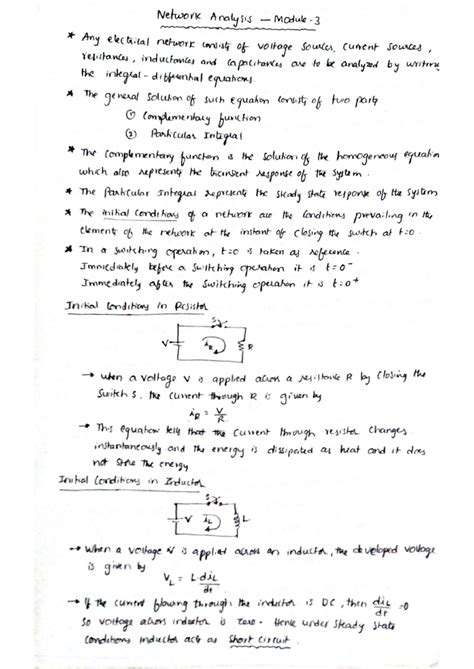 Network Analysis - Module-3
* Any electrical network consists of voltage sources, current sources,
resistances, inductances and capacitances are to be analyzed by writing
the integral-differential equations.
* The general solution of such equation consists of two parts
① Complementary function
② Particular Integral
* The complementary function is the solution of the homogeneous equation
which also represents the transient response of the system.
* The Particular Integral represents the steady state response of the system
* The initial conditions of a network are the conditions prevailing in the
elements of the network at the instant of closing the switch at t=0.
* In a switching operation, t=0 is taken as reference.
Immediately before a switching operation it is t=0⁻
Immediately after the switching operation it is t=0⁺
Initial Conditions in Resistor
S
V iR R
→ when a voltage V is applied across a resistance R by closing the
switch S, the current through R is given by
iR = V/R
→ This equation tells that the current through resistor changes
instantaneously and the energy is dissipated as heat and it does
not store the energy
Initial Conditions in Inductor
S
V iL L
→ when a voltage V is applied across an inductor, the developed voltage
is given by
VL = L diL/dt
→ If the current flowing through the inductor is DC, then diL/dt =0
so voltage across inductor is zero. Hence under steady state
conditions inductor acts as short circuit.